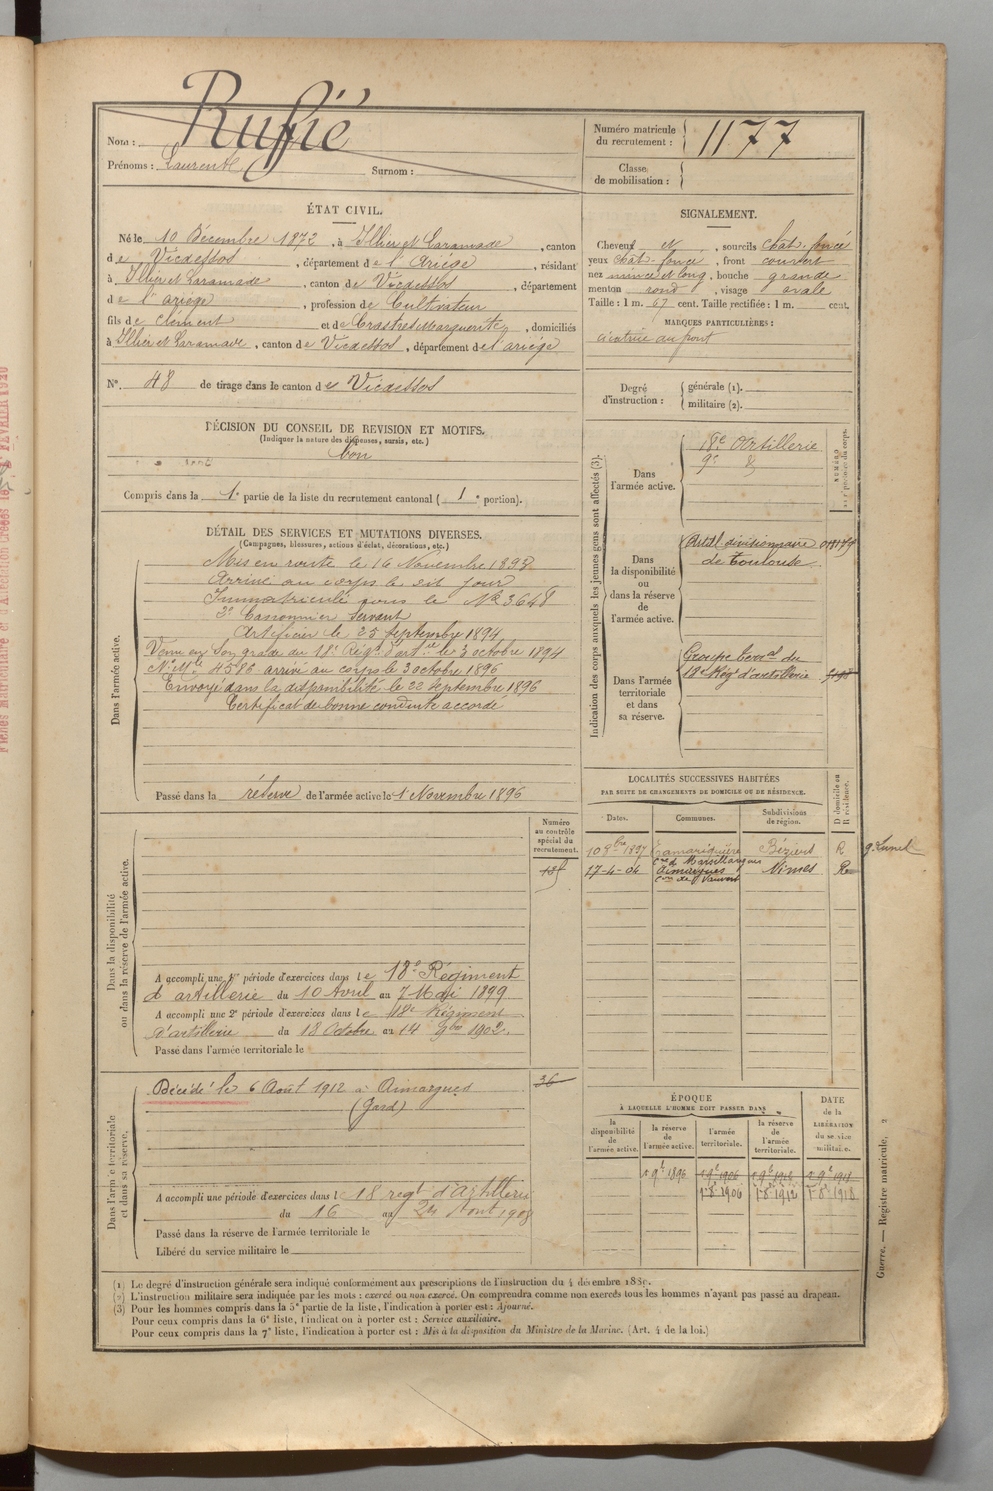 Nom : Rufié
Prénoms : Laurent
Surnom :
Numéro matricule du recrutement : 1177
Classe de mobilisation :
ÉTAT CIVIL.
Né le 10 Décembre 1872, à Illier et Laramade, canton
de Vicdessos, département de l'Ariége, résidant
à Illier et Laramade, canton de Vicdessos, département
de l'ariége, profession de Cultivateur
fils de Clément et de Crastres Marguerite, domiciliés
à Illier et Laramade, canton de Vicdessos, département de l'ariége
N°. 48 de tirage dans le canton de Vicdessos
DÉCISION DU CONSEIL DE REVISION ET MOTIFS.
(Indiquer la nature des dispenses, sursis, etc.)
bon
Compris dans la 1e partie de la liste du recrutement cantonal (1e portion).
SIGNALEMENT.
Cheveux N, sourcils chat. foncé
yeux chat. foncé, front couvert
nez mince et long, bouche grande
menton rond, visage ovale
Taille : 1 m. 67 cent. Taille rectifiée : 1 m. cent.
MARQUES PARTICULIÈRES :
cicatrice au front
Degré d'instruction : générale (1).
militaire (2).
DÉTAIL DES SERVICES ET MUTATIONS DIVERSES.
(Campagnes, blessures, actions d'éclat, décorations, etc.)
Dans l'armée active.
Mis en route le 16 Novembre 1893
Arrivé au corps le dit jour
Immatriculé sous le No 3648
2e Canonnier Servant
Artificier le 25 Septembre 1894
Venu en son grade du 18e Régt d'artie le 3 octobre 1894
No Mle 4586 arrivé au corps le 3 octobre 1896
Envoyé dans la disponibilité le 22 septembre 1896
Certificat de bonne conduite accordé
Passé dans la réserve de l'armée active le 1 Novembre 1896
Indication des corps auxquels les jeunes gens sont affectés (3).
NUMÉRO
Dans l'armée active.
18e Artillerie
9e
Dans la disponibilité ou dans la réserve de l'armée active.
Artil. divisionnaire
de Toulouse
Dans l'armée territoriale et dans sa réserve.
Groupe terral du
18e Rég. d'artillerie
LOCALITÉS SUCCESSIVES HABITÉES
PAR SUITE DE CHANGEMENTS DE DOMICILE OU DE RÉSIDENCE.
D domicile ou R résidence.
Dates. Communes. Subdivisions de région.
10 8bre 1897 Béziers R
Cne de Marsillargues
17-4-04 Aimargues Nîmes R
Con de Vauvert
g. Lunel
Numéro au contrôle spécial du recrutement.
Dans la disponibilité ou dans la réserve de l'armée active.
A accompli une 1re période d'exercices dans le 18e Régiment
d'artillerie du 10 Avril au 7 Mai 1899
A accompli une 2e période d'exercices dans le 18e Régiment
d'artillerie du 18 Octobre au 14 9bre 1902.
Passé dans l'armée territoriale le
Dans l'armée territoriale et dans sa réserve.
Décédé le 6 Août 1912 à Aimargues
(Gard)
36
A accompli une période d'exercices dans le 18 regt d'Artillerie
du 16 au 24 Août 1908
Passé dans la réserve de l'armée territoriale le
Libéré du service militaire le
ÉPOQUE
À LAQUELLE L'HOMME DOIT PASSER DANS
la disponibilité de l'armée active.
la réserve de l'armée active.
l'armée territoriale.
la réserve de l'armée territoriale.
DATE de la LIBÉRATION du service militaire.
1 9e 1896 1 9e 1906 1 9e 1912 1 9e 1918
1-8-1906 1-8-1912 1-8-1918
Guerre. — Registre matricule. 2
(1) Le degré d'instruction générale sera indiqué conformément aux prescriptions de l'instruction du 4 décembre 1889.
(2) L'instruction militaire sera indiquée par les mots : exercé ou non exercé. On comprendra comme non exercés tous les hommes n'ayant pas passé au drapeau.
(3) Pour les hommes compris dans la 5e partie de la liste, l'indication à porter est : Ajourné.
Pour ceux compris dans la 6e liste, l'indication à porter est : Service auxiliaire.
Pour ceux compris dans la 7e liste, l'indication à porter est : Mis à la disposition du Ministre de la Marine. (Art. 4 de la loi.)